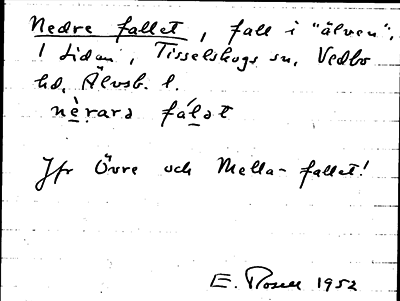 Nedre fallet, fall i "älven",
i Lidan, Tisselskogs sn, Vedbo
hd, Älvsb. l.
nèrarə fálət
Jfr Övre och Mella-fallet!
E. Rosell 1952